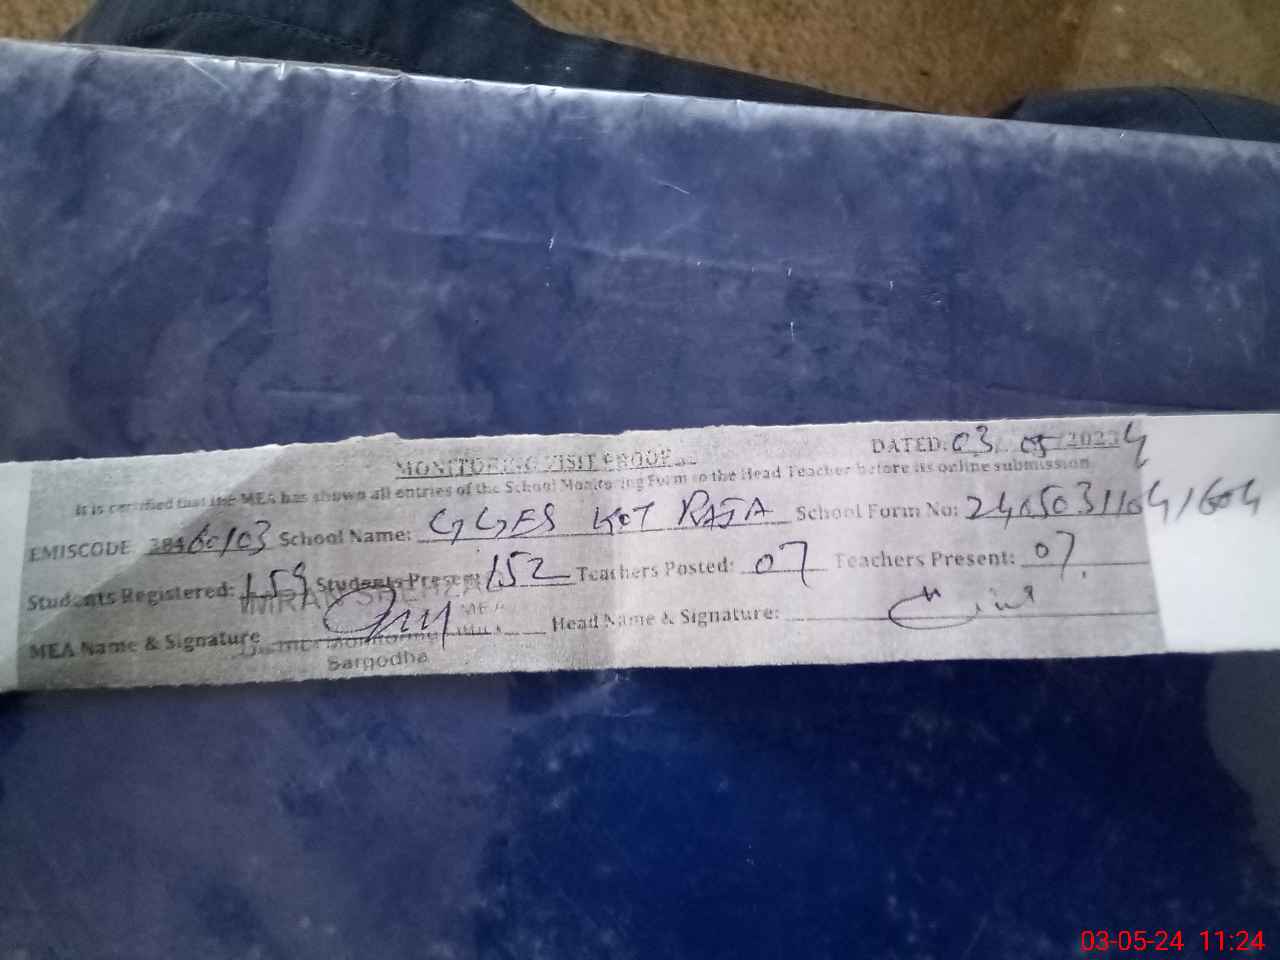 MONITORING VISIT PROOF DATED: 03 05 /2024
It is certified that the MEA has shown all entries of the School Monitoring Form to the Head Teacher before its online submission.
EMISCODE 38460103 School Name: GGES KOT RAJA School Form No: 2405031104/1604
Students Registered: 159 Students Present 152 Teachers Posted: 07 Teachers Present: 07
MEA Name & Signature MEA Head Name & Signature:
District Monitoring
Sargodha
03-05-24 11:24